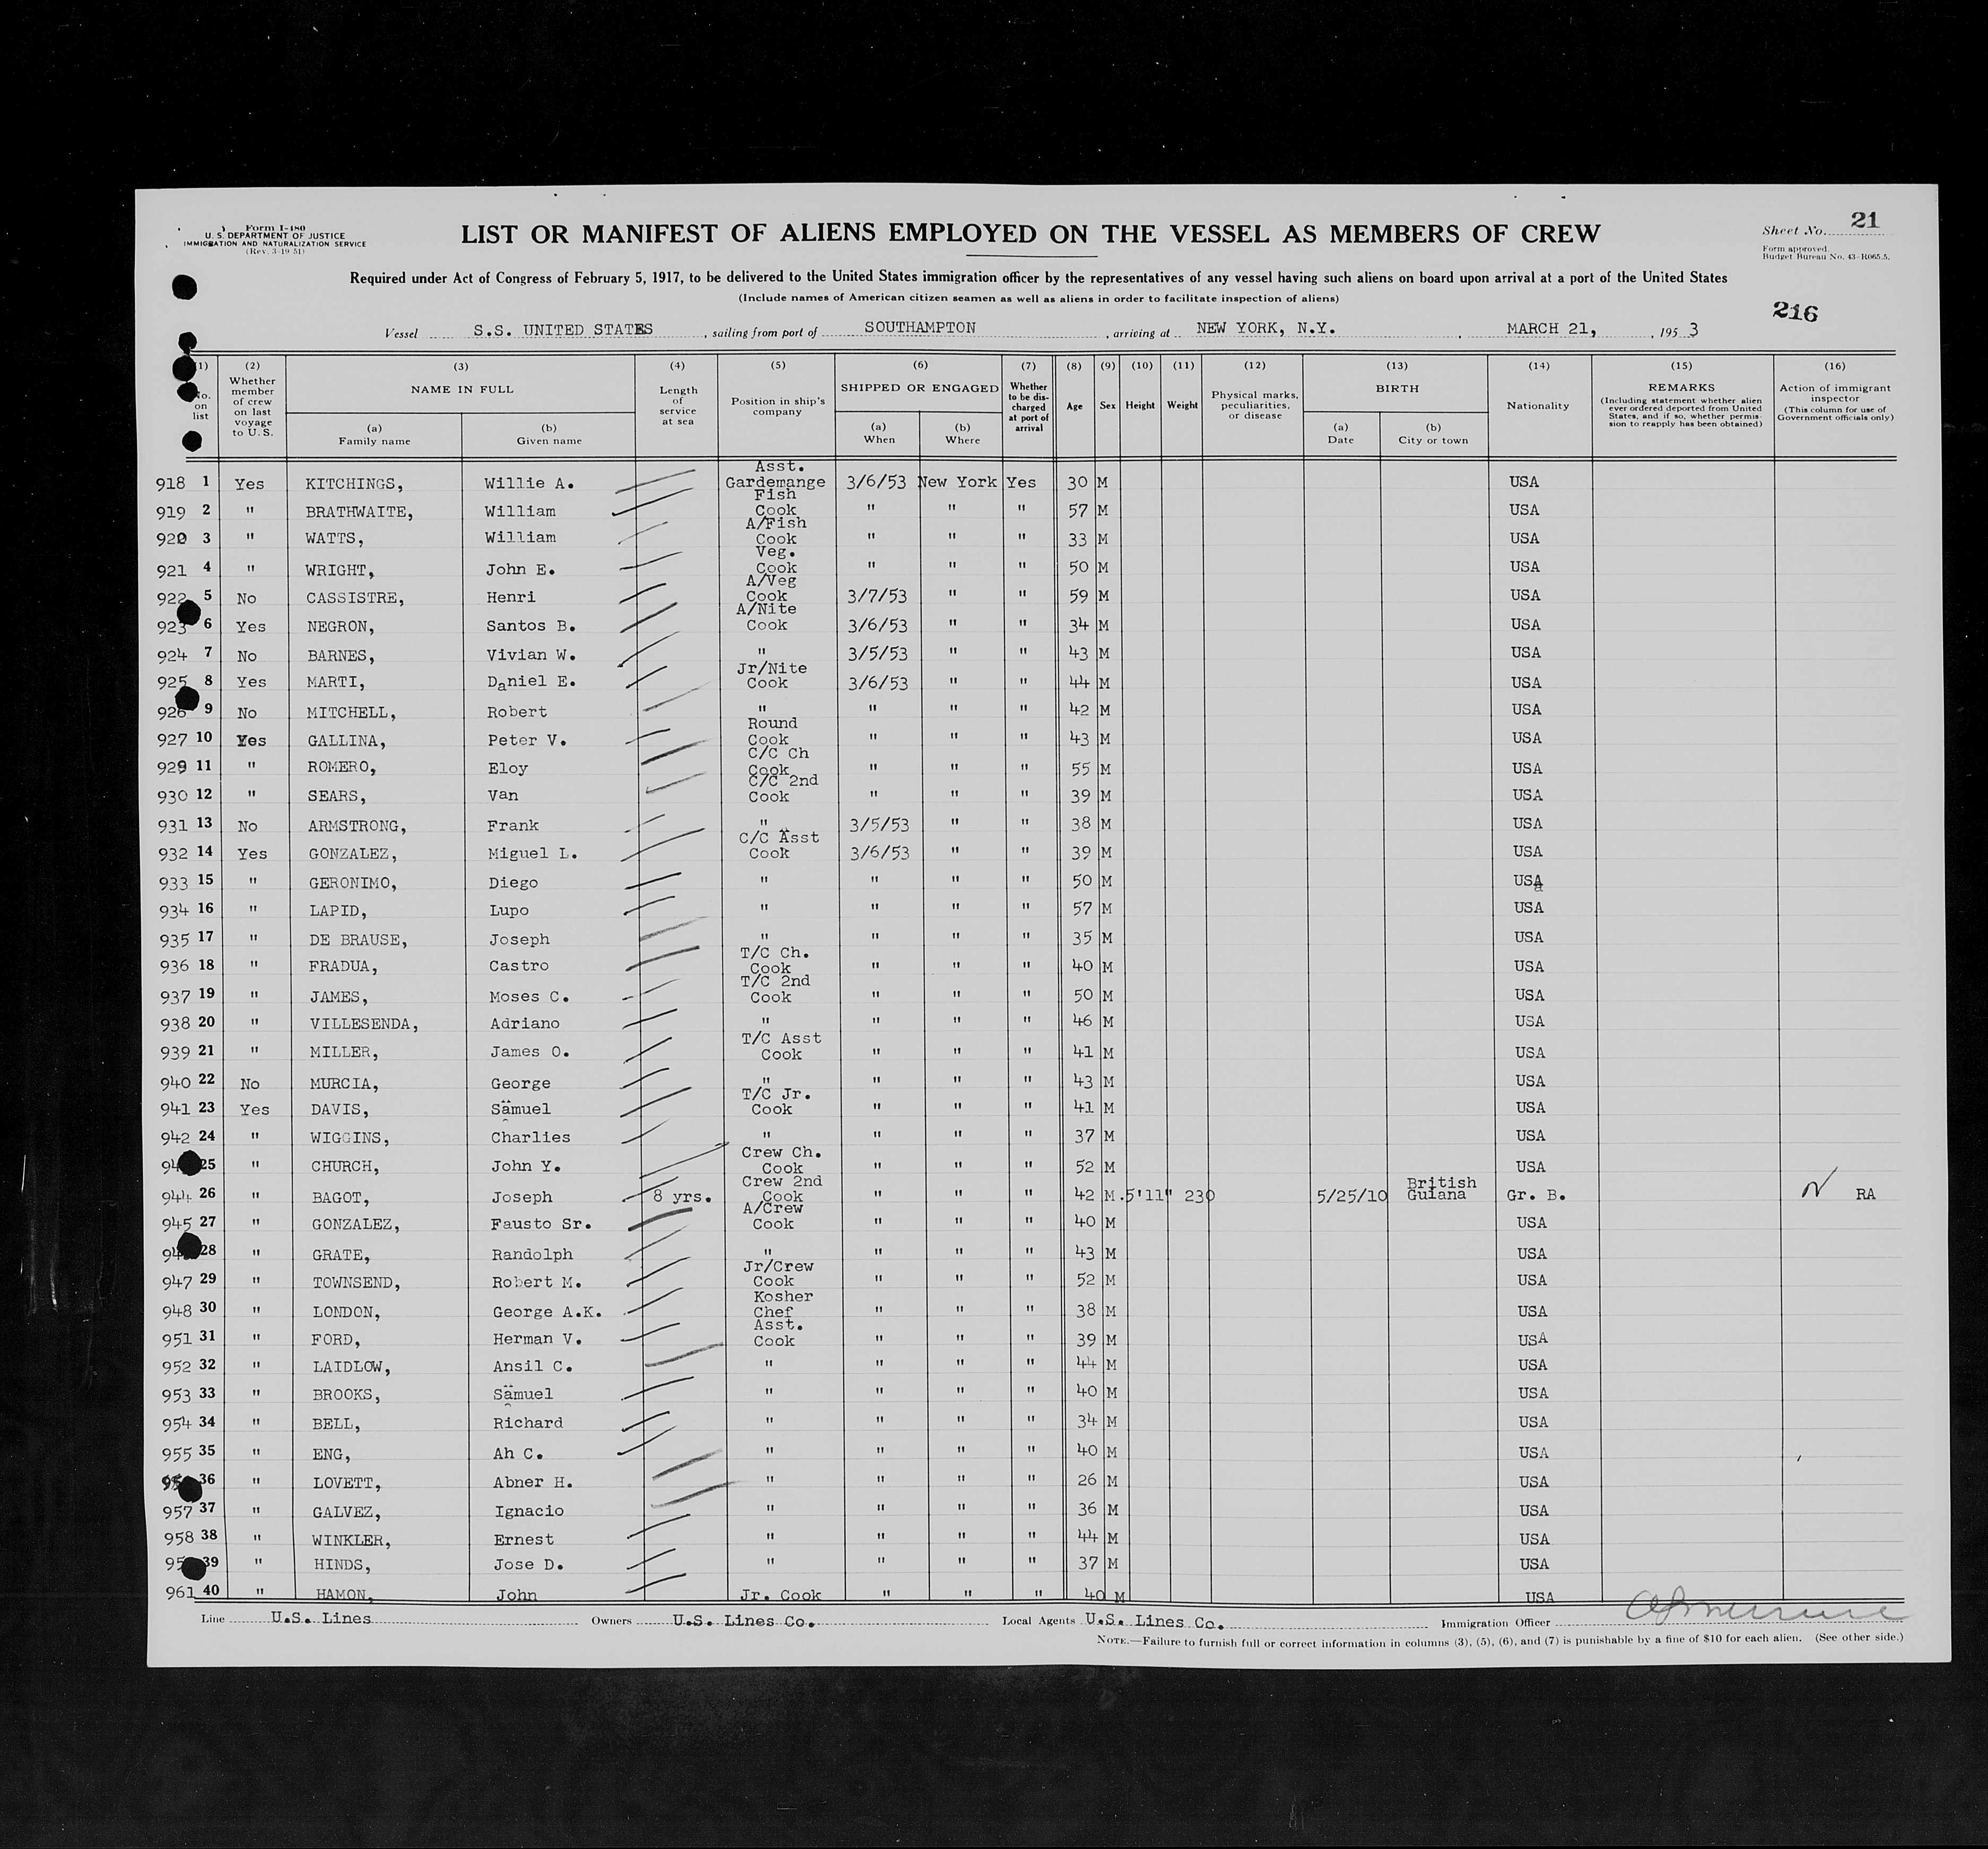 Form I-480
U. S. DEPARTMENT OF JUSTICE
IMMIGRATION AND NATURALIZATION SERVICE
(Rev. 3-19-51)
LIST OR MANIFEST OF ALIENS EMPLOYED ON THE VESSEL AS MEMBERS OF CREW
Sheet No. 21
Form approved.
Budget Bureau No. 43-R065.5.
Required under Act of Congress of February 5, 1917, to be delivered to the United States immigration officer by the representatives of any vessel having such aliens on board upon arrival at a port of the United States
(Include names of American citizen seamen as well as aliens in order to facilitate inspection of aliens)
216
Vessel S.S. UNITED STATES, sailing from port of SOUTHAMPTON, arriving at NEW YORK, N.Y., MARCH 21, 1953
(1) No. on list
(2) Whether member of crew on last voyage to U. S.
(3) NAME IN FULL (a) Family name (b) Given name
(4) Length of service at sea
(5) Position in ship's company
(6) SHIPPED OR ENGAGED (a) When (b) Where
(7) Whether to be discharged at port of arrival
(8) Age
(9) Sex
(10) Height
(11) Weight
(12) Physical marks, peculiarities, or disease
(13) BIRTH (a) Date (b) City or town
(14) Nationality
(15) REMARKS (Including statement whether alien ever ordered deported from United States, and if so, whether permission to reapply has been obtained)
(16) Action of immigrant inspector (This column for use of Government officials only)
918 1 Yes KITCHINGS, Willie A. Asst. Gardemange 3/6/53 New York Yes 30 M USA
919 2 " BRATHWAITE, William Fish Cook " " " 57 M USA
920 3 " WATTS, William A/Fish Cook " " " 33 M USA
921 4 " WRIGHT, John E. Veg. Cook " " " 50 M USA
922 5 No CASSISTRE, Henri A/Veg Cook 3/7/53 " " 59 M USA
923 6 Yes NEGRON, Santos B. A/Nite Cook 3/6/53 " " 34 M USA
924 7 No BARNES, Vivian W. " 3/5/53 " " 43 M USA
925 8 Yes MARTI, Daniel E. Jr/Nite Cook 3/6/53 " " 44 M USA
926 9 No MITCHELL, Robert " " " " 42 M USA
927 10 Yes GALLINA, Peter V. Round Cook " " " 43 M USA
929 11 " ROMERO, Eloy C/C Ch Cook " " " 55 M USA
930 12 " SEARS, Van C/C 2nd Cook " " " 39 M USA
931 13 No ARMSTRONG, Frank " 3/5/53 " " 38 M USA
932 14 Yes GONZALEZ, Miguel L. C/C Asst Cook 3/6/53 " " 39 M USA
933 15 " GERONIMO, Diego " " " " 50 M USA
934 16 " LAPID, Lupo " " " " 57 M USA
935 17 " DE BRAUSE, Joseph " " " " 35 M USA
936 18 " FRADUA, Castro T/C Ch. Cook " " " 40 M USA
937 19 " JAMES, Moses C. T/C 2nd Cook " " " 50 M USA
938 20 " VILLESENDA, Adriano " " " " 46 M USA
939 21 " MILLER, James O. T/C Asst Cook " " " 41 M USA
940 22 No MURCIA, George " " " " 43 M USA
941 23 Yes DAVIS, Samuel T/C Jr. Cook " " " 41 M USA
942 24 " WIGGINS, Charlies " " " " 37 M USA
25 " CHURCH, John Y. Crew Ch. Cook " " " 52 M USA
944 26 " BAGOT, Joseph 8 yrs. Crew 2nd Cook " " " 42 M 5'11" 230 5/25/10 British Guiana Gr. B. RA
945 27 " GONZALEZ, Fausto Sr. A/Crew Cook " " " 40 M USA
28 " GRATE, Randolph " " " " 43 M USA
947 29 " TOWNSEND, Robert M. Jr/Crew Cook " " " 52 M USA
948 30 " LONDON, George A.K. Kosher Chef " " " 38 M USA
951 31 " FORD, Herman V. Asst. Cook " " " 39 M USA
952 32 " LAIDLOW, Ansil C. " " " " 44 M USA
953 33 " BROOKS, Samuel " " " " 40 M USA
954 34 " BELL, Richard " " " " 34 M USA
955 35 " ENG, Ah C. " " " " 40 M USA
36 " LOVETT, Abner H. " " " " 26 M USA
957 37 " GALVEZ, Ignacio " " " " 36 M USA
958 38 " WINKLER, Ernest " " " " 44 M USA
39 " HINDS, Jose D. " " " " 37 M USA
961 40 " HAMON, John Jr. Cook " " " 40 M USA
Line U.S. Lines Owners U.S. Lines Co. Local Agents U.S. Lines Co. Immigration Officer
NOTE.—Failure to furnish full or correct information in columns (3), (5), (6), and (7) is punishable by a fine of $10 for each alien. (See other side.)